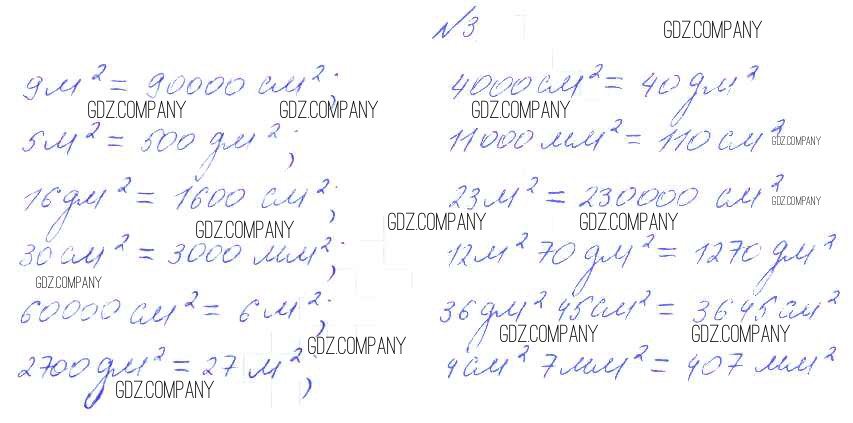 №3
GDZ.COMPANY
9м² = 90000 см²;
GDZ.COMPANY GDZ.COMPANY
5м² = 500 дм²;
16дм² = 1600 см²;
GDZ.COMPANY
30см² = 3000 мм²;
GDZ.COMPANY
60000 см² = 6м²;
GDZ.COMPANY
2700дм² = 27 м²;
GDZ.COMPANY
4000см² = 40дм²
GDZ.COMPANY
11000мм² = 110 см²
GDZ.COMPANY
23м² = 230000 см²
GDZ.COMPANY
GDZ.COMPANY GDZ.COMPANY
12м² 70 дм² = 1270 дм²
36дм² 45см² = 3645см²
GDZ.COMPANY GDZ.COMPANY
4см² 7мм² = 407 мм²